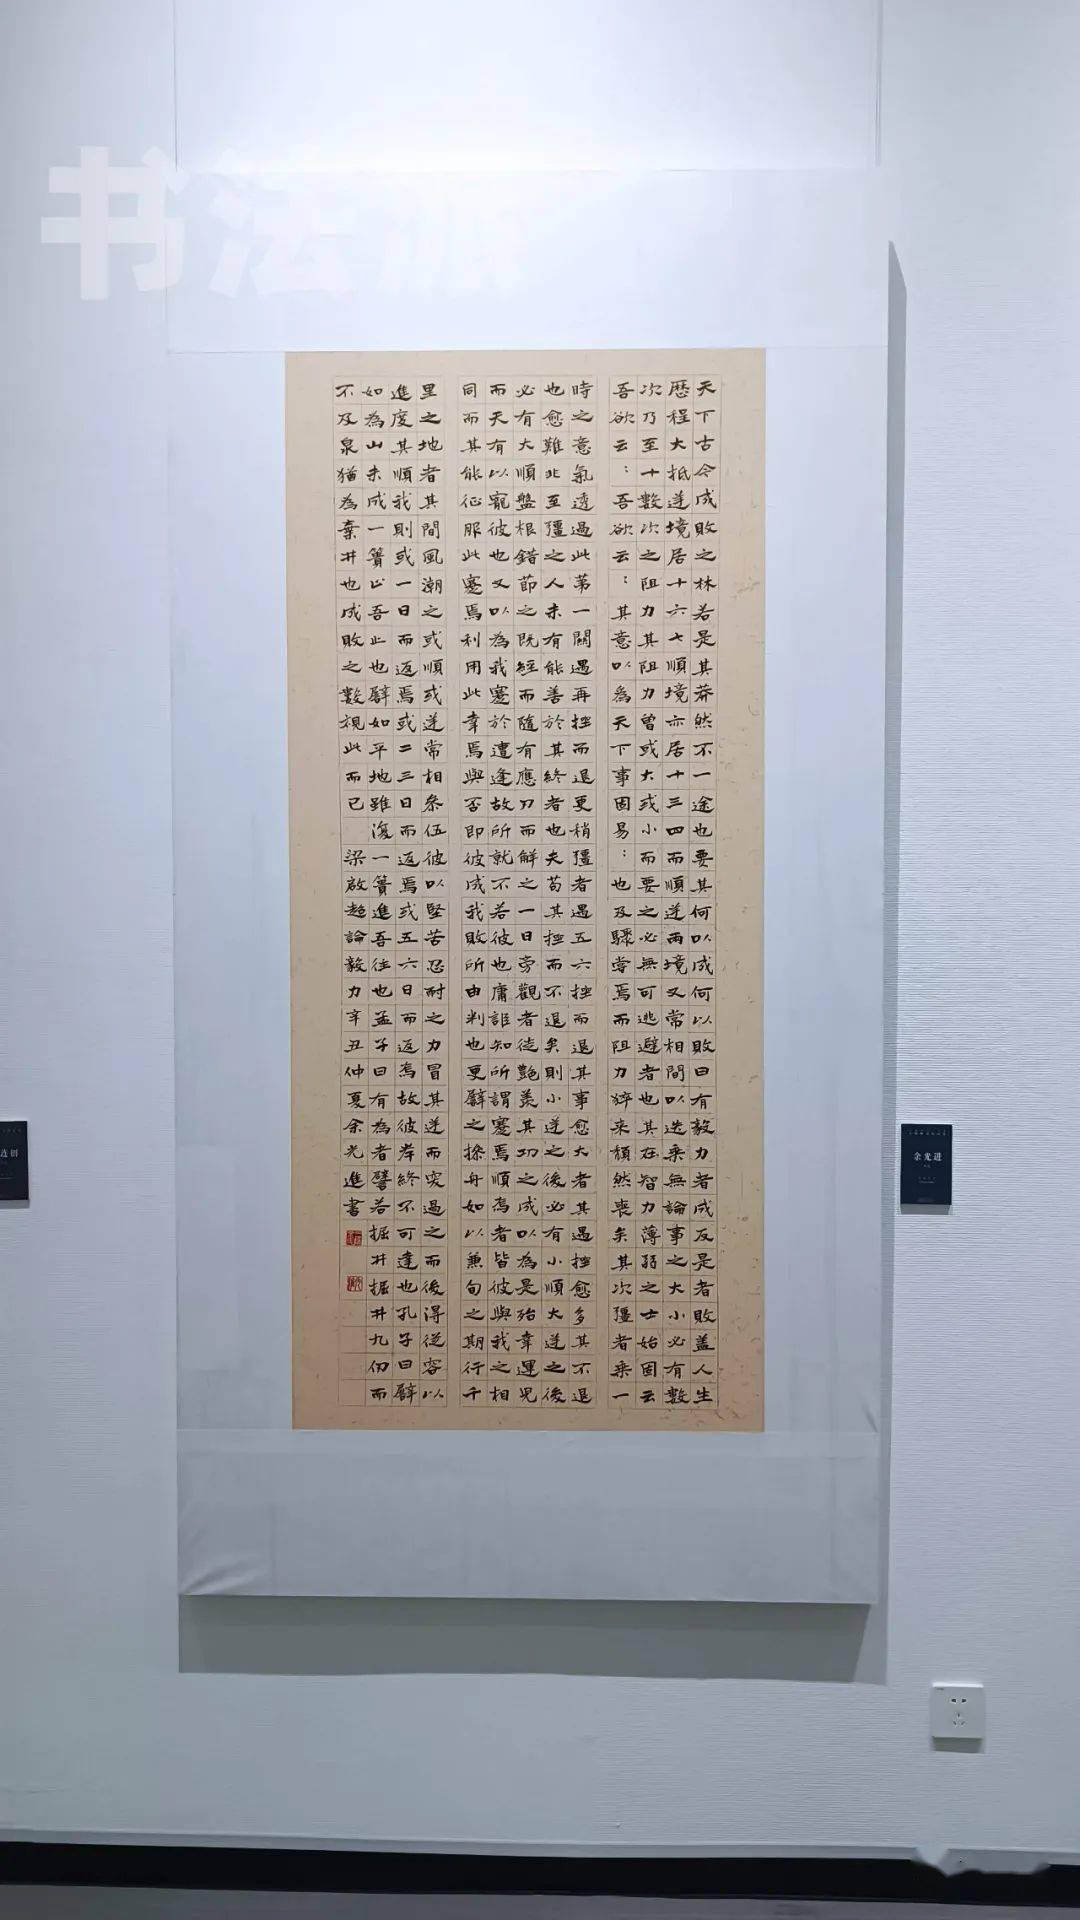 书法
天下古今成敗之林若是其莽然不一途也要其何以成何以敗曰有毅力者成反是者敗蓋人生
歷程大抵逆境居十六七順境亦居十三四而順逆兩境又常相間以迭乘無論事之大小必有數
次乃至十數次之阻力其阻力曾或大或小而要之必無可逃避者也其在智力薄弱之士始固云
吾欲云：吾欲云：其意以為天下事固易：也及驟嘗焉而阻力猝來頹然喪矣其次彊者乘一
時之意氣透過此第一關遇再挫而退更稍彊者遇五六挫而退其事愈大者其遇挫愈多其不退
也愈難非至彊之人未有能善於其終者也夫苟其挫而不退矣則小逆之後必有小順大逆之後
必有大順盤根錯節之既經而隨有應刃而解之一日旁觀者徒艷羨其功之成以為是殆幸運兒
而天有以寵彼也又以為我蹇於遭逢故所就不若彼也庸詎知所謂蹇焉順焉者皆彼與我之相
同而其能征服此蹇焉利用此幸焉與否即彼成我敗所由判也更譬之操舟如以兼旬之期行千
里之地者其間風潮之或順或逆常相參伍彼以堅苦忍耐之力冒其逆而突過之而後得從容以
進度其順我則或一日而返焉或二三日而返焉或五六日而返焉故彼岸終不可達也孔子曰譬
如為山未成一簣止吾止也譬如平地雖復一簣進吾往也孟子曰有為者譬若掘井掘井九仞而
不及泉猶為棄井也成敗之數視此而已 梁啟超論毅力辛丑仲夏余光進書
余光进